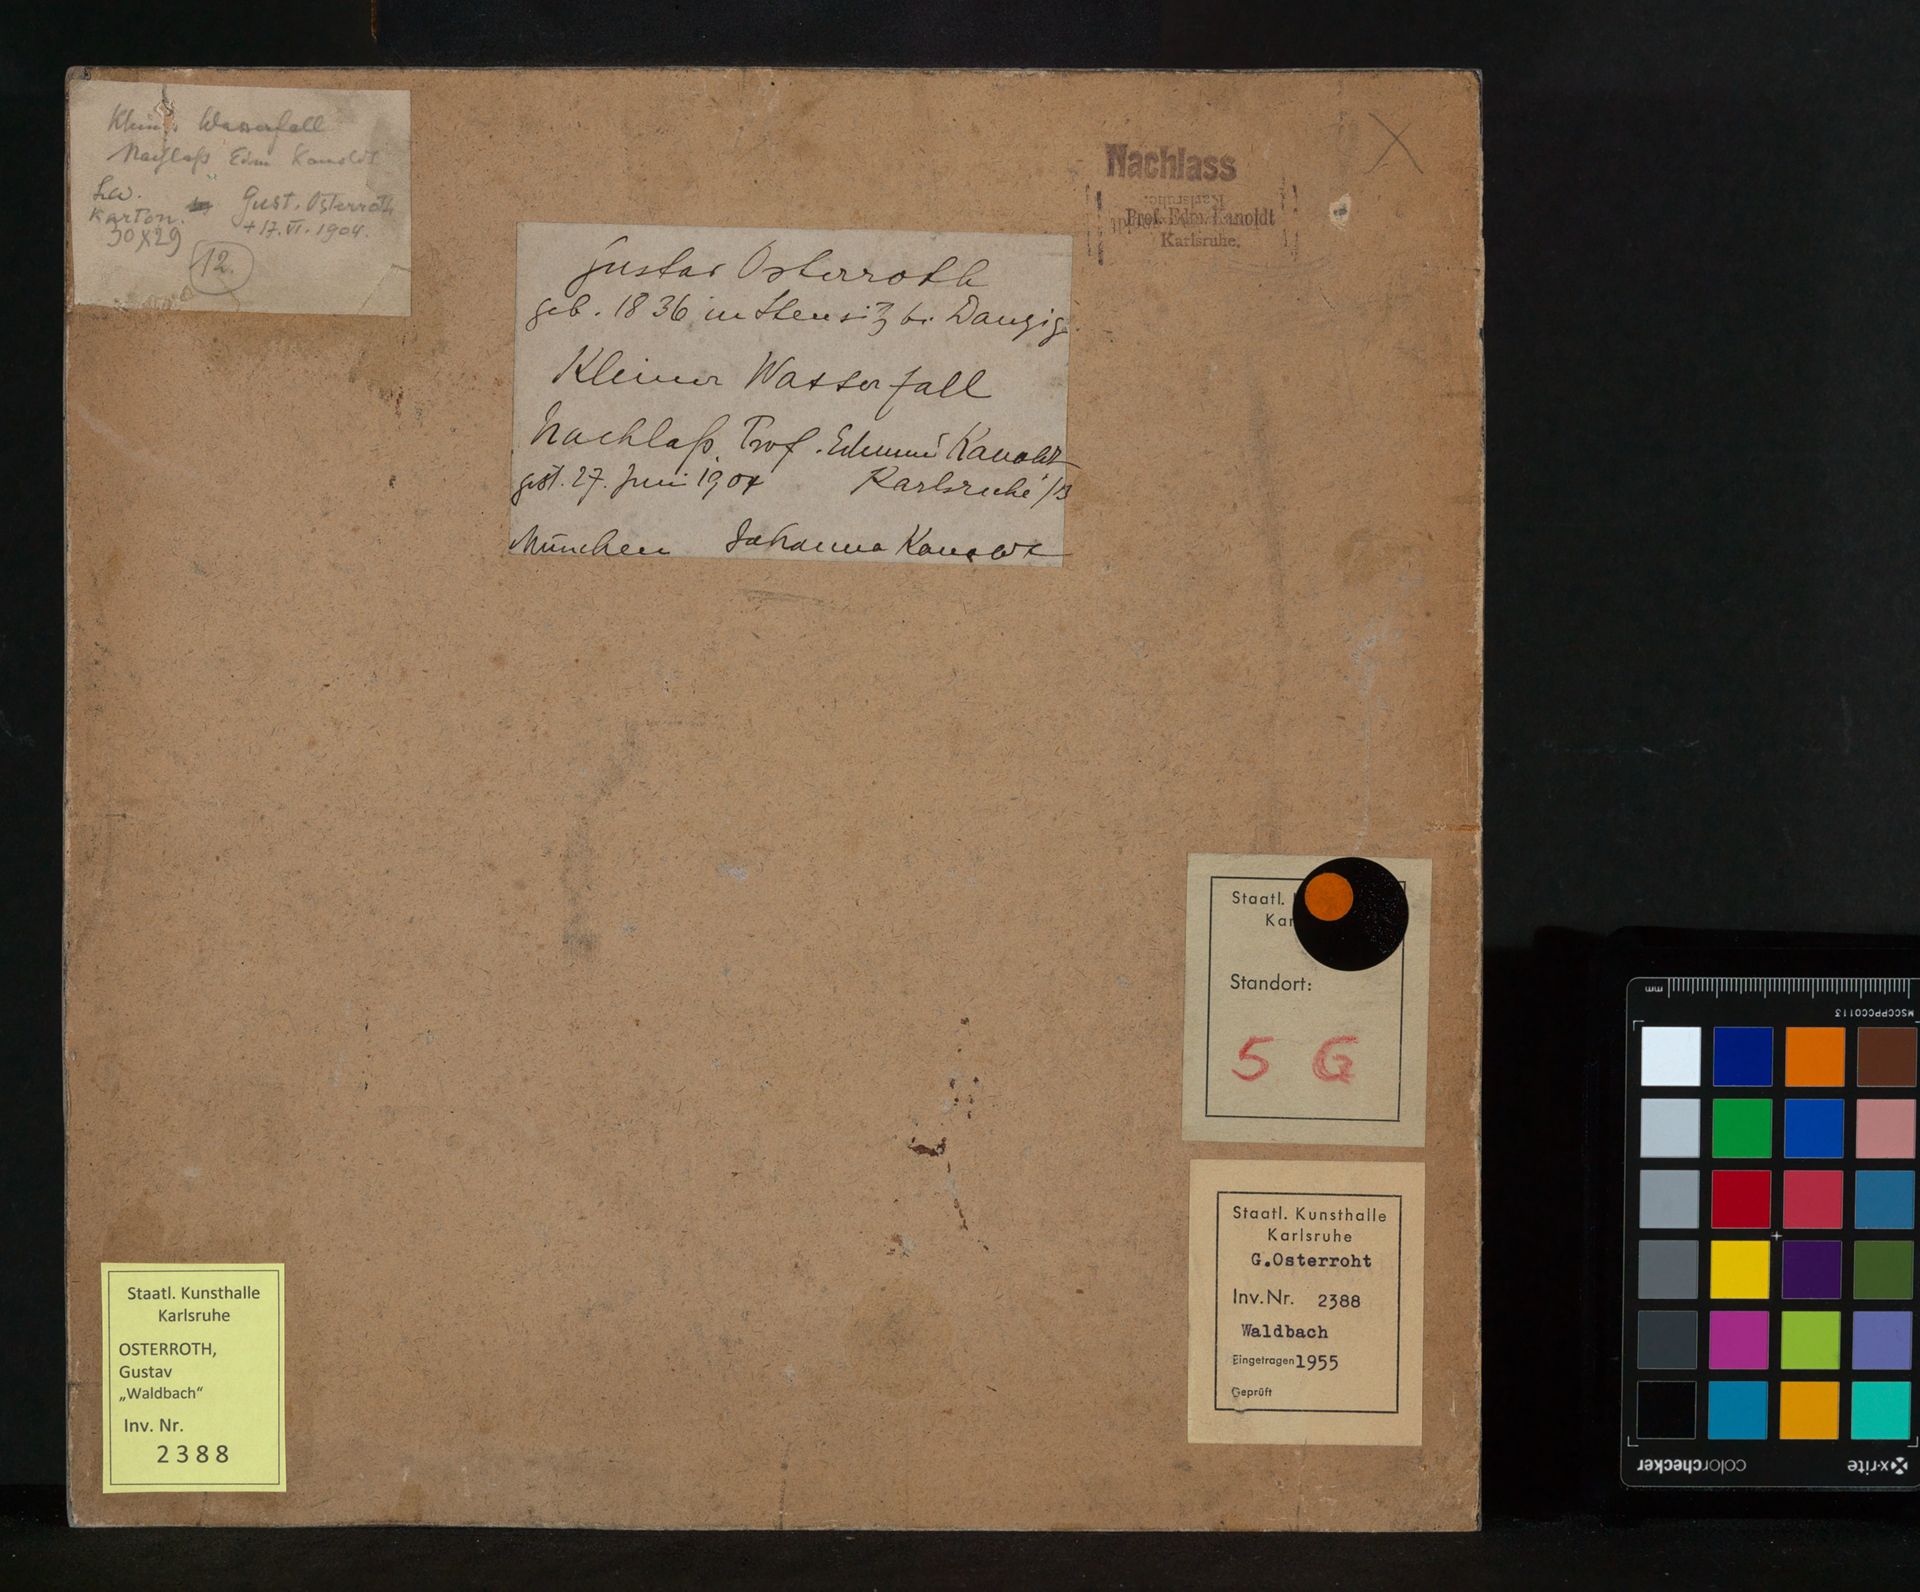 Wasserfall
Nachlaß Edm Kanoldt
Lw.
Karton.
30x29
Gust. Osterroth
+ 17. VI. 1904.
12.
Nachlass
Prof. Edm. Kanoldt
Karlsruhe.
Gustav Osterroth
geb. 1836 in Stensitz b. Danzig.
Kleiner Wasserfall
Nachlaß Prof. Edmund Kanoldt
gest. 27. Juni 1904 Karlsruhe /B
München Johanna Kanoldt
Staatl.
Standort:
5 G
Staatl. Kunsthalle
Karlsruhe
G.Osterroht
Inv. Nr. 2388
Waldbach
Eingetragen 1955
Geprüft
Staatl. Kunsthalle
Karlsruhe
OSTERROTH,
Gustav
„Waldbach“
Inv. Nr.
2388
mm
MSCCPPCC0113
x-rite
colorchecker